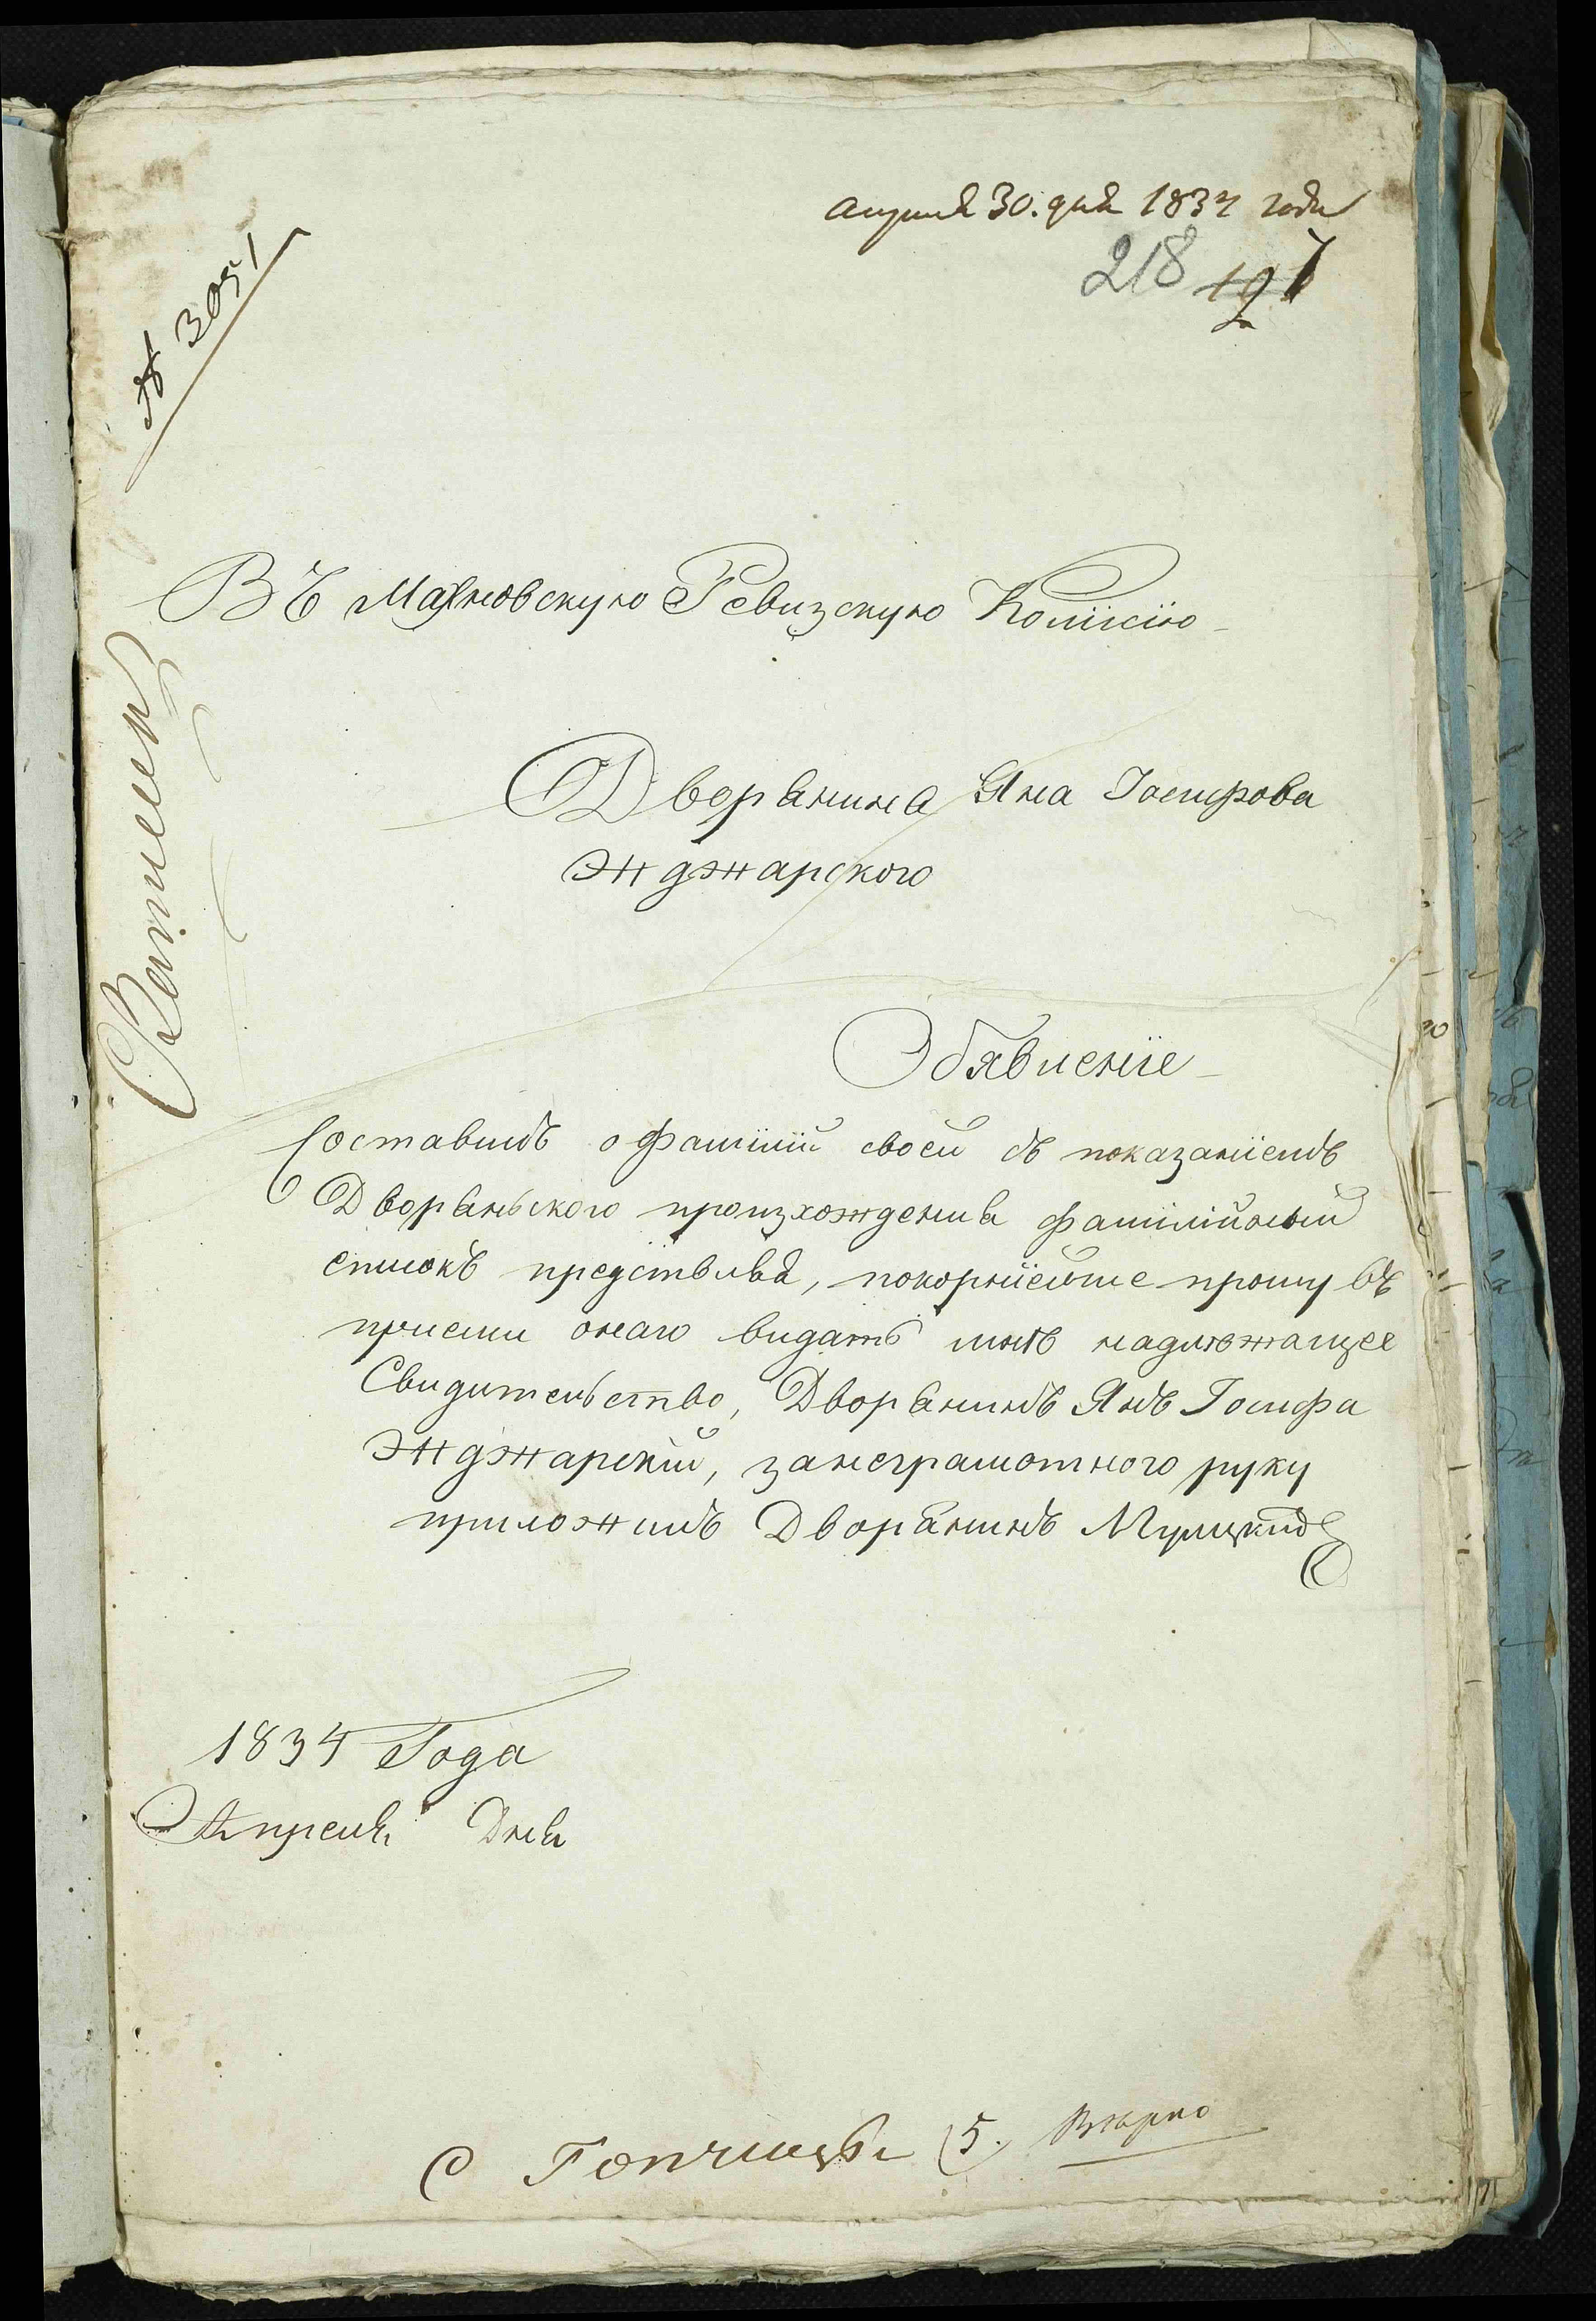 апреля 30. дня 1834 года
218
№ 3051
Въ Махновскую Ревизскую Комісію
Дворянина Яна Іосифова
Жджарского
Обявленіе
Составивъ о фамиліи своей съ показаніемъ
Дворянского произхожденія фамилійный
списокъ предствляя, покорнѣейше прошу въ
приеми онаго видать мнѣ надлѣжащее
Свидительство, Дворянинъ Янъ Іосифа
Жджарскій, занеграмотного руку
приложилъ Дворянинъ
1834 Года
Апреля Дня
С Гопчицы 5. Вѣрно